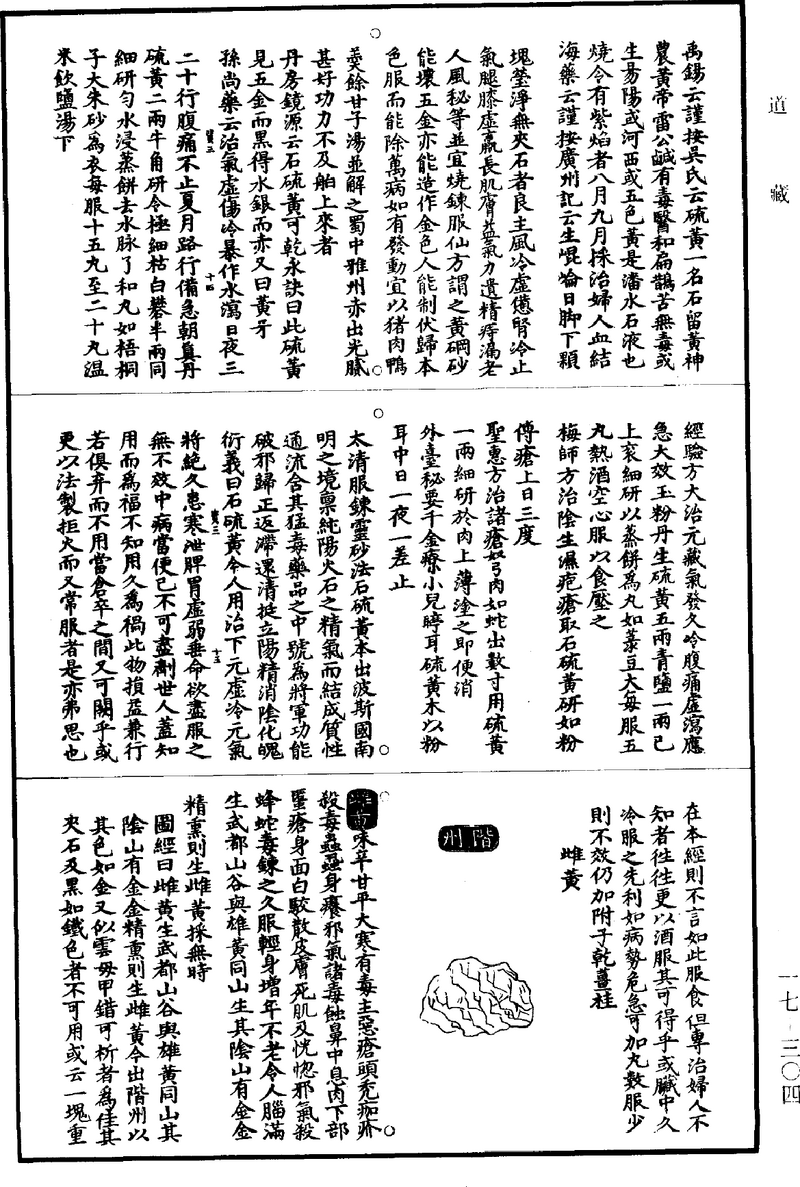 道藏
禹錫云謹按吳氏云硫黃一名石留黃神
農黃帝雷公鹹有毒醫和扁鵲苦無毒或
生易陽或河西或五色黃是潘水石液也
燒令有紫焰者八月九月採治婦人血結
海藥云謹按廣州記云生崑崙日脚下顆
塊瑩淨無夾石者良主風冷虛憊腎冷上
氣腿膝虛羸長肌膚益氣力遺精痔漏老
人風秘等並宜燒鍊服仙方謂之黃硇砂
能壞五金亦能造作金色人能制伏歸本
色服而能除萬病如有發動宜以猪肉鴨
羮餘甘子湯並解之蜀中雅州亦出光膩
甚好功力不及舶上來者
丹房鏡源云石硫黃可乾汞訣曰此硫黃
見五金而黑得水銀而赤又曰黃牙
孫尚藥云治氣虛傷冷暴作水瀉日夜三
二十行腹痛不止夏月路行備急朝真丹
硫黃二兩牛角研令極細枯白礬半兩同
細研勻水浸蒸餅去水脉了和丸如梧桐
子大朱砂為衣每服十五丸至二十丸溫
米飲鹽湯下
經驗方大治元藏氣發久冷腹痛虛瀉應
急大效玉粉丹生硫黃五兩青鹽一兩已
上衮細研以蒸餅為丸如菉豆大每服五
丸熱酒空心服以食壓之
梅師方治陰生濕疱瘡取石硫黃研如粉
傅瘡上日三度
聖惠方治諸瘡弩肉如蛇出數寸用硫黃
一兩細研於肉上薄塗之即便消
外臺秘要千金療小兒聤耳硫黃末以粉
耳中日一夜一差止
太清服鍊靈砂法石硫黃本出波斯國南
明之境禀純陽火石之精氣而結成質性
通流含其猛毒藥品之中號為將軍功能
破邪歸正返滯還清挺立陽精消陰化魄
衍義曰石硫黃今人用治下元虛冷元氣
將絕久患寒泄脾胃虛弱垂命欲盡服之
無不效中病當便已不可盡劑世人蓋知
用而為福不知用久為禍此物損益兼行
若俱弃而不用當倉卒之間又可闕乎或
更以法製拒火而又常服者是亦弗思也
在本經則不言如此服食但專治婦人不
知者往往更以酒服其可得乎或臟中久
冷服之先利如病勢危急可加丸數服少
則不效仍加附子乾薑桂
雌黃
階州
雌黃味辛甘平大寒有毒主惡瘡頭禿痂疥
殺毒蟲蝨身癢邪氣諸毒蝕鼻中息肉下部
䘌瘡身面白駮散皮膚死肌及恍惚邪氣殺
蜂蛇毒鍊之久服輕身增年不老令人腦滿
生武都山谷與雄黃同山生其陰山有金金
精熏則生雌黃採無時
圖經曰雌黃生武都山谷與雄黃同山其
陰山有金金精熏則生雌黃今出階州以
其色如金又似雲母甲錯可析者為佳其
夾石及黑如鐵色者不可用或云一塊重
一七-三〇四